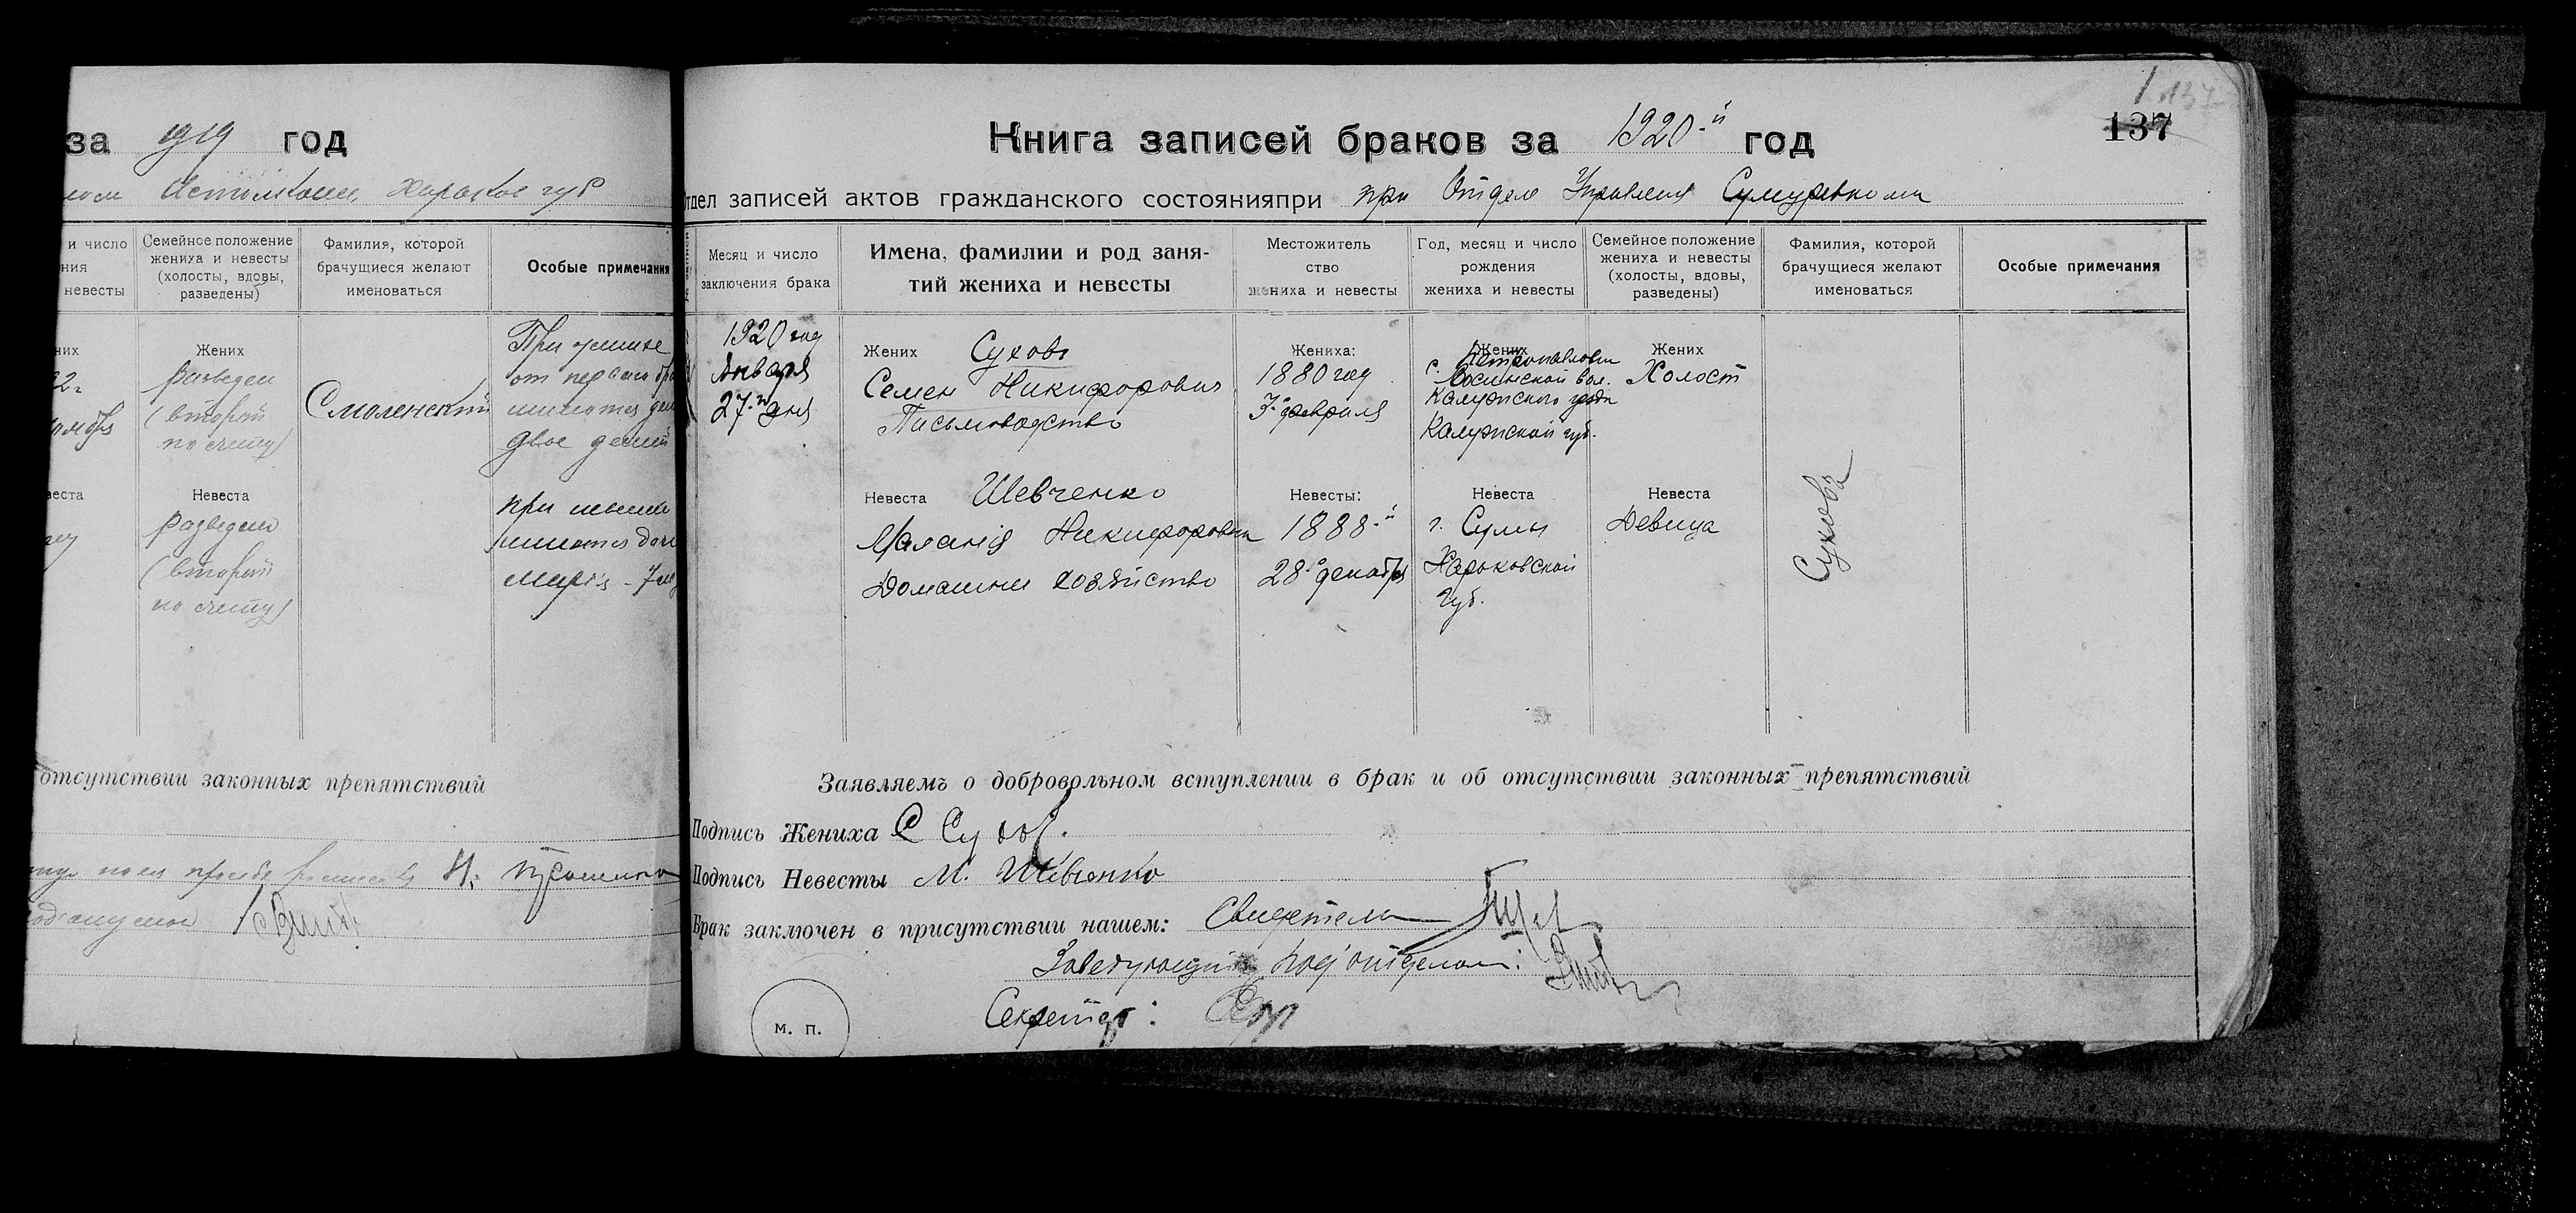 за 1919 год
Исполкоме, Харьков губ
и число
ния
невесты
Семейное положение
жениха и невесты
(холосты, вдовы,
разведены)
Фамилия, которой
брачущиеся желают
именоваться
Особые примечания
них
Жених
разведен
(второй
по счету)
Смоленский
При
от первого
двое детей
веста
Невеста
разведена
(второй
по счету)
при
отсутствии законных препятствий
1
137
137
Книга записей браков за 1920-й год
Отдел записей актов гражданского состоянияпри при Отделе Управления Сумуревкома
Месяц и число
заключения брака
Имена, фамилии и род заня-
тий жениха и невесты
Местожитель
ство
жениха и невесты
Год, месяц и число
рождения
жениха и невесты
Семейное положение
жениха и невесты
(холосты, вдовы,
разведены)
Фамилия, которой
брачущиеся желают
именоваться
Особые примечания
1920 год
Января
27-го дня
Жених Сухов
Семен Никифорович
Письмоводство
Жениха:
1880 год
3-го февраля
Жених
с.
вол.
Калужского уезда
Калужской губ.
Жених
Холост
Невеста Шевченко
Маланія Никифоровна
Домашнее хозяйство
Невесты:
1888-й
28-го декабря
Невеста
г. Сумы
Харьковской
Губ.
Невеста
Девица
Сухова
Заявляемъ о добровольном вступлении в брак и об отсутствии законных препятствий
Подпись Жениха С Сухов.
Подпись Невесты М. Шевченко
Брак заключен в присутствии нашем: Свидетели
Заведующий Под'отделом:
Секретарь:
м. п.